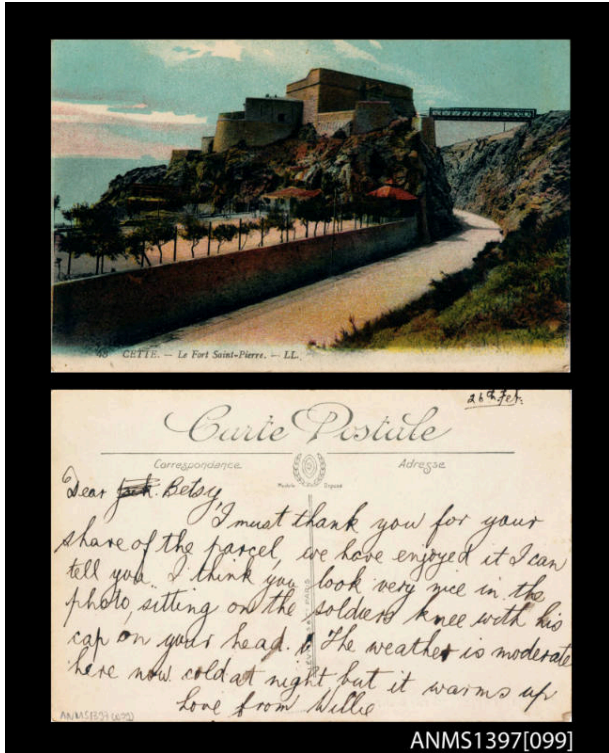 48 CETTE. — Le Fort Saint-Pierre. — LL.
26th Feb.
Carte Postale
Correspondance
Adresse
Dear Betsy,
I must thank you for your
share of the parcel, we have enjoyed it I can
tell you. I think you look very nice in the
photo, sitting on the soldiers knee with his
cap on your head. The weather is moderate
here now cold at night but it warms up
Love from Willie
ANMS1397[099]
ANMS1397[099]